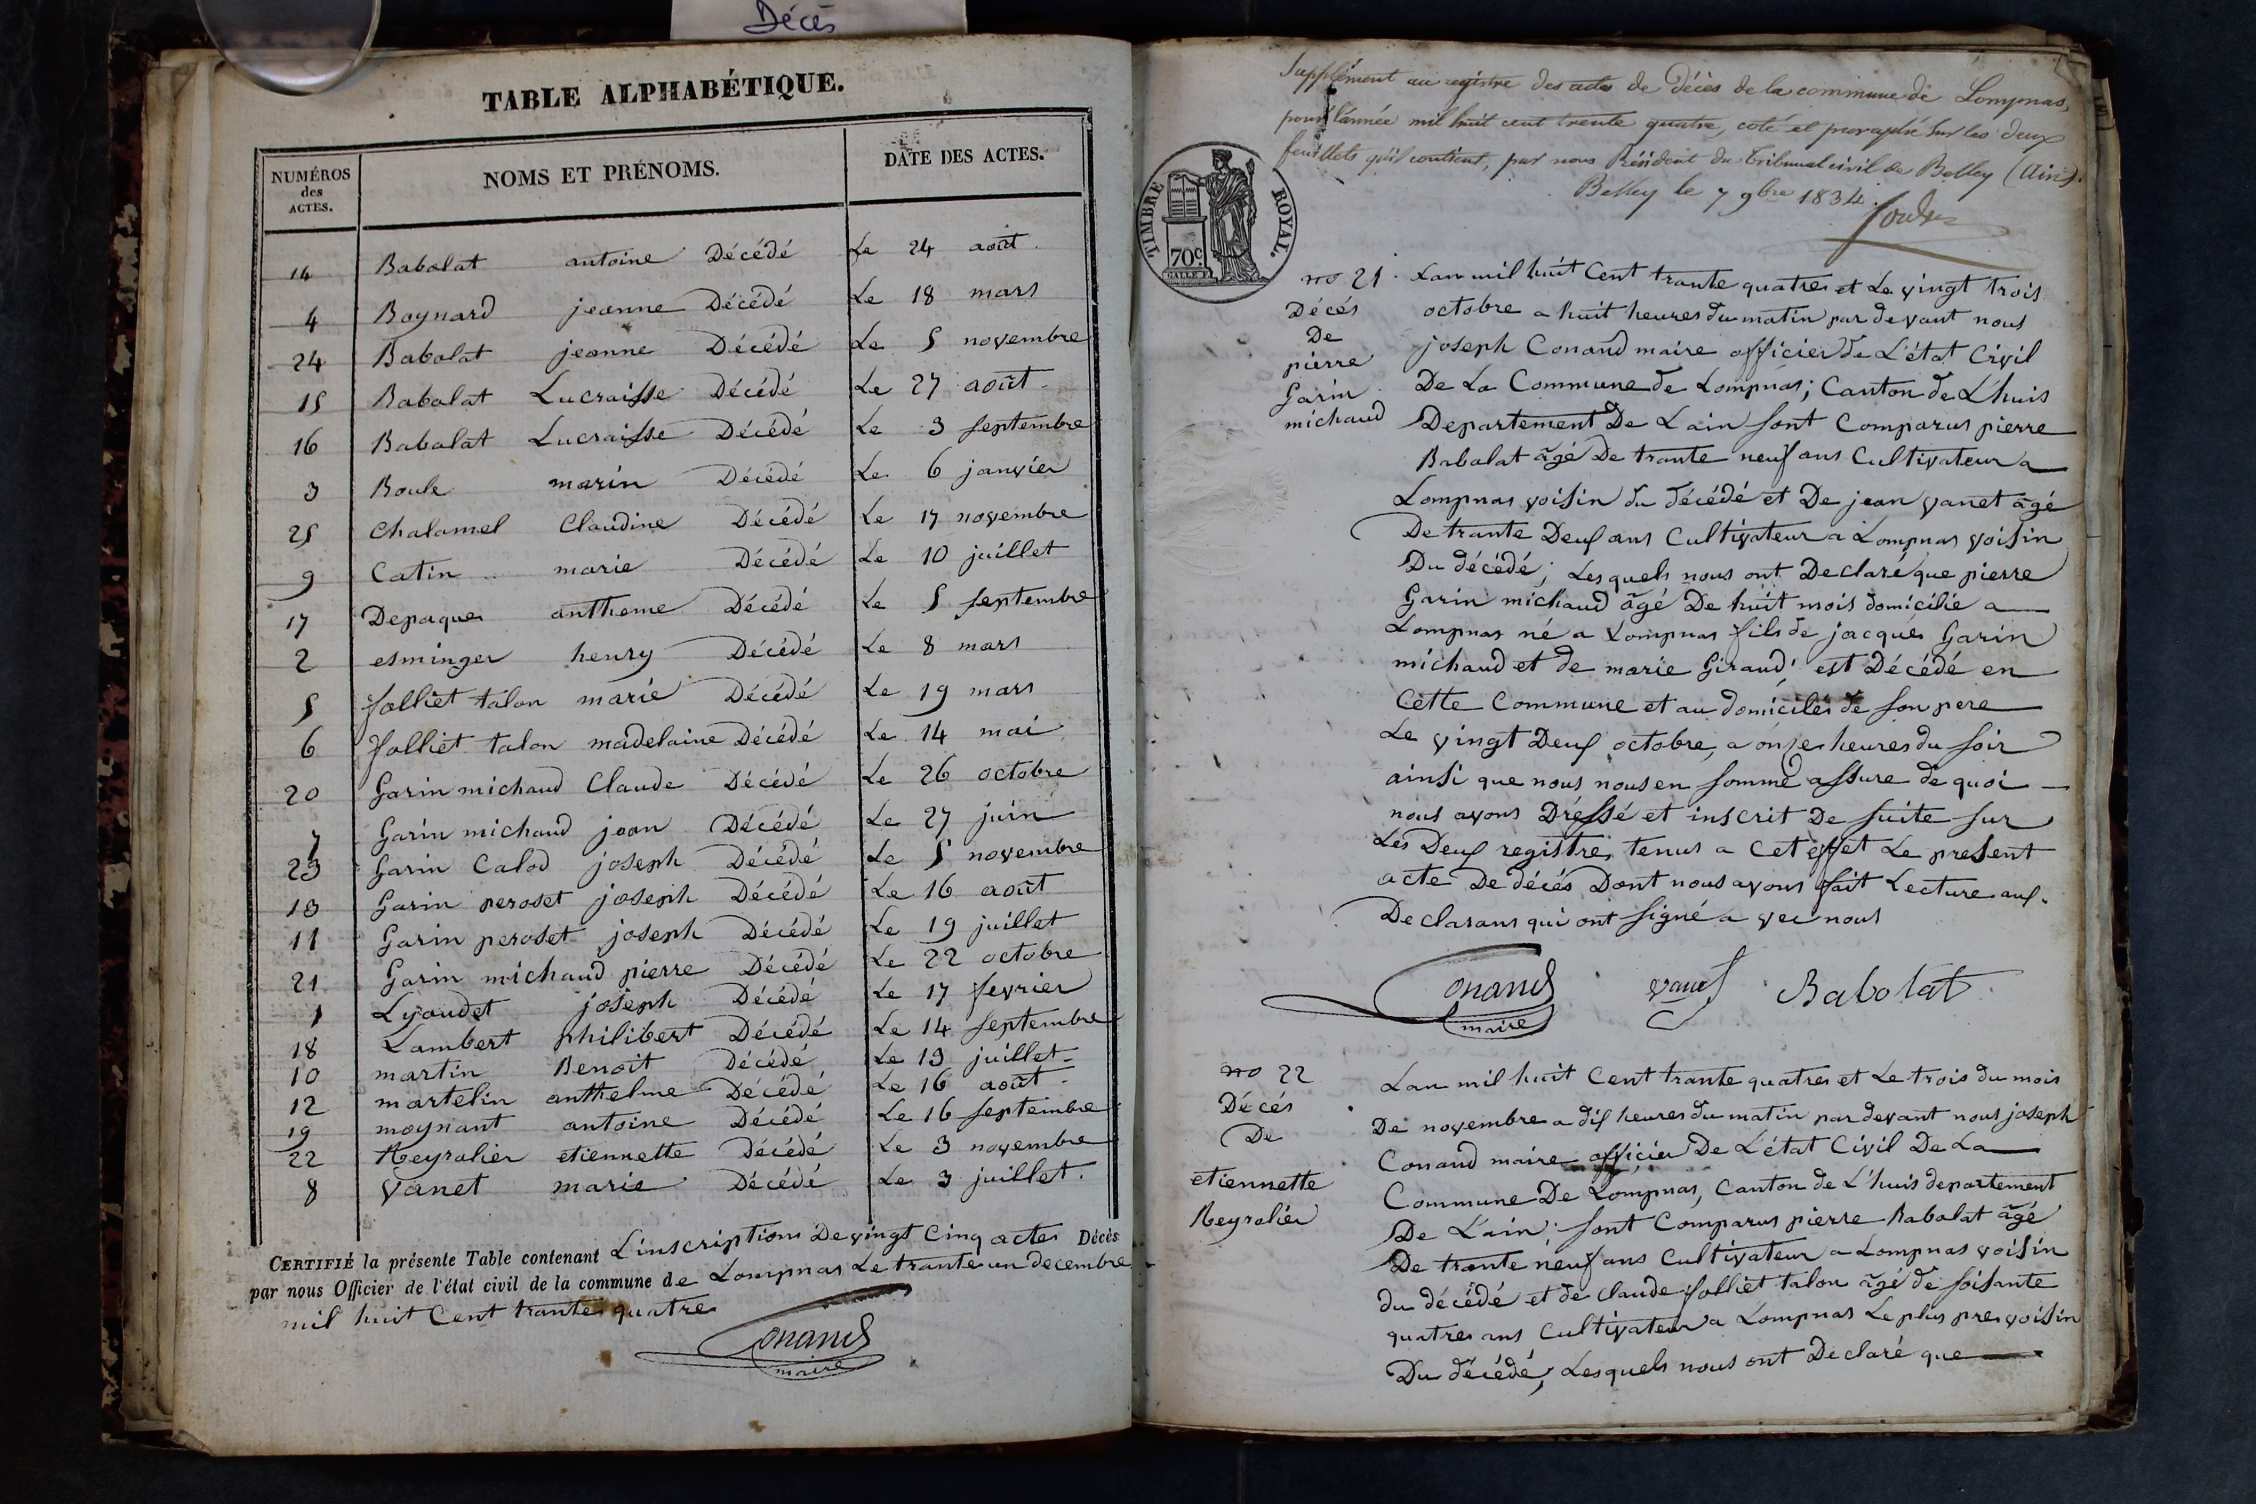 Décès
TABLE ALPHABÉTIQUE.
NUMÉROS des ACTES. NOMS ET PRÉNOMS. DATE DES ACTES.
14 Babolat antoine Décédé Le 24 août
4 Boynard jeanne Décédé Le 18 mars
24 Babolat jeanne Décédé Le 5 novembre
15 Babolat Lucraisse Décédé Le 27 août
16 Babolat Lucraisse Décédé Le 3 septembre
3 Boule marin Décédé Le 6 janvier
25 Chalamel Claudine Décédé Le 17 novembre
9 Catin marie Décédé Le 10 juillet
17 Depaques antheme Décédé Le 5 septembre
2 esminger henry Décédé Le 8 mars
5 folliet talon marie Décédé Le 19 mars
6 folliet talon madelaine Décédé Le 14 mai
20 Garin michaud Claude Décédé Le 26 octobre
7 Garin michaud jean Décédé Le 27 juin
23 Garin Calod joseph Décédé Le 5 novembre
13 Garin peroset joseph Décédé Le 16 août
11 Garin peroset joseph Décédé Le 19 juillet
21 Garin michaud pierre Décédé Le 22 octobre
1 Lyaudet joseph Décédé Le 17 fevrier
18 Lambert philibert Décédé Le 14 septembre
10 martin Benoit Décédé Le 13 juillet
12 martelin anthelme Décédé Le 16 août
19 moynant antoine Décédé Le 16 septembre
22 Reyralier etiennette Décédé Le 3 novembre
8 Vanet marie Décédé Le 3 juillet.
CERTIFIÉ la présente Table contenant L'inscriptions De vingt Cinq actes Décès
par nous Officier de l'état civil de la commune de Lompnas Le trante un decembre
mil huit Cent trantes quatre
Conand
maire
Supplément au registre des actes de Décès de la commune de Lompnas,
pour l'année mil huit cent trente quatre, coté et paraphé sur les deux
feuillets qu'il contient, par nous Président du Tribunal civil de Belley (Ain).
Belley le 7 9bre 1834.
TIMBRE ROYAL.
70c.
no 21
Décés
De
pierre
Garin
michaud
Lan mil huit Cent trante quatres et Le vingt trois
octobre a huit heures du matin par devant nous
joseph Conand maire officier de L'état Civil
De La Commune de Lompnas; Canton de L'huis
Departement De Lain sont Comparus pierre
Babolat âgé De trante neuf ans Cultivateur a
Lompnas voisin du décédé et De jean vanet âgé
De trante Deux ans Cultivateur a Lompnas voisin
Du décédé; Lesquels nous ont Declaré que pierre
Garin michaud âgé De huit mois domicilié a
Lompnas né a Lompnas fils de jacques Garin
michaud et de marie Giraud, est Décédé en
Cette Commune et au domiciles de son pere
Le vingt Deux octobre, a onze heures du soir
ainsi que nous nous en somme assure de quoi
nous avons Dréssé et inscrit De suite sur
Les Deux registres tenus a Cet effet Le present
acte De décés Dont nous avons fait Lecture aux
Declarans qui ont signé a vec nous
Conand
maire
vanet
Babolat
no 22
Décés
De
etiennette
Reyralier
Lan mil huit Cent trante quatres et Le trois du mois
De novembre a dix heures du matin par devant nous joseph
Conand maire officier De L'état Civil De La
Commune De Lompnas, Canton de L'huis departement
De L'ain; sont Comparus pierre Babolat âgé
De trante neuf ans Cultivateur a Lompnas voisin
du décédé et de Claude folliet talon âgé de soisante
quatres ans Cultivateur a Lompnas Le plus pres voisin
Du décédé, Lesquels nous ont Declaré que